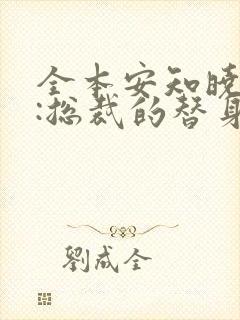 全本安知晓
:总裁的替身
劉成全